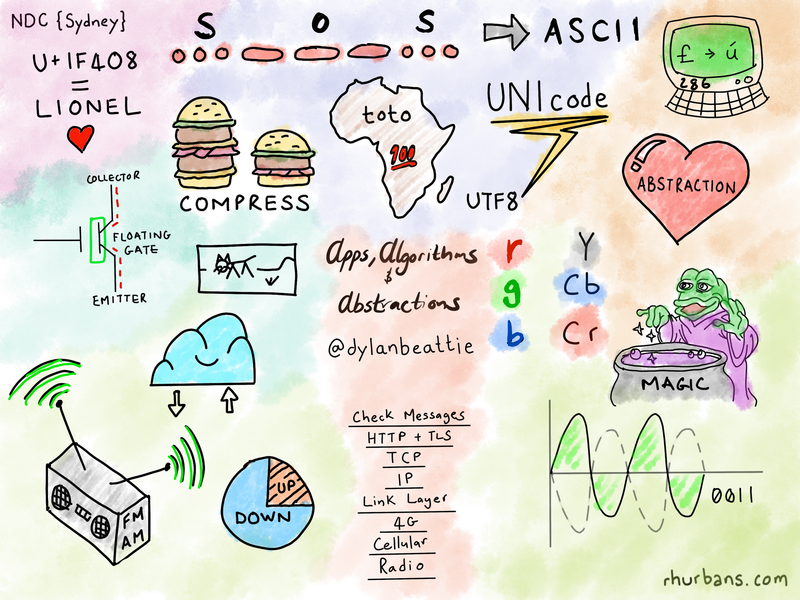 NDC {Sydney}
S O S
ASCII
£ → ú
286
U+1F408
=
LIONEL
COMPRESS
toto
100
UNIcode
UTF8
ABSTRACTION
COLLECTOR
FLOATING
GATE
EMITTER
Apps, Algorithms
&
Abstractions
@dylanbeattie
r
g
b
Y
Cb
Cr
MAGIC
FM
AM
UP
DOWN
Check Messages
HTTP + TLS
TCP
IP
Link Layer
4G
Cellular
Radio
0011
rhurbans.com